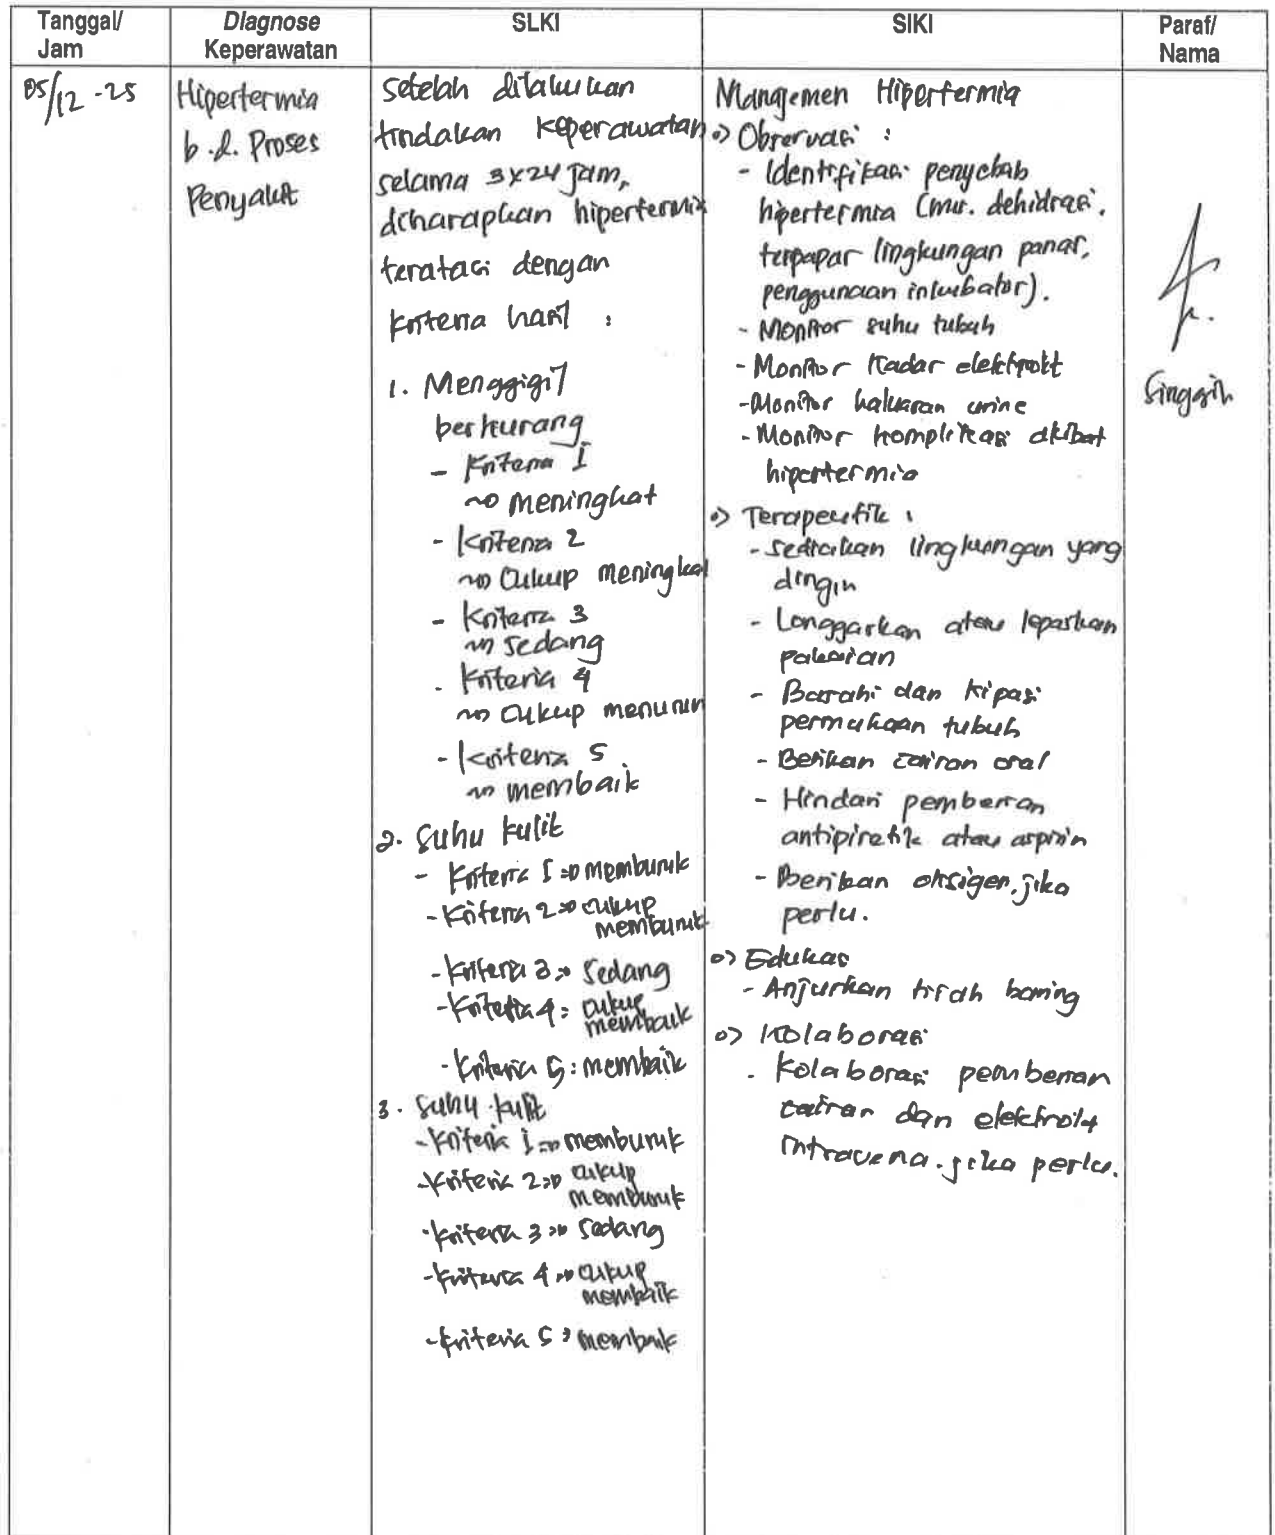 Tanggal/
Jam
Diagnose
Keperawatan
SLKI
SIKI
Paraf/
Nama
05/12 -25
Hipertermia
b.d. Proses
Penyakit
Setelah dilakukan
tindakan Keperawatan
selama 3x24 jam,
diharapkan hipertermia
teratasi dengan
kriteria hasil :
1. Menggigil
berkurang
- Kriteria 1
~> meningkat
- Kriteria 2
~> Cukup meningkat
- Kriteria 3
~> sedang
- Kriteria 4
~> cukup menurun
- Kriteria 5
~> membaik
2. Suhu kulit
- Kriteria 1 => memburuk
- Kriteria 2 => cukup
memburuk
- Kriteria 3 => Sedang
- Kriteria 4 = cukup
membaik
- Kriteria 5 : membaik
3. Suhu kulit
- Kriteria 1 => memburuk
- Kriteria 2 => cukup
memburuk
- Kriteria 3 => Sedang
- Kriteria 4 => cukup
membaik
- Kriteria 5 : membaik
Manajemen Hipertermia
=> Observasi :
- Identifikasi penyebab
hipertermia (mis. dehidrasi,
terpapar lingkungan panas,
penggunaan inkubator).
- Monitor suhu tubuh
- Monitor Kadar elektrolit
- Monitor haluaran urine
- Monitor komplikasi akibat
hipertermia
=> Terapeutik :
- Sediakan lingkungan yang
dingin
- Longgarkan atau lepaskan
pakaian
- Basahi dan kipasi
permukaan tubuh
- Berikan cairan oral
- Hindari pemberian
antipiretik atau aspirin
- Berikan oksigen, jika
perlu.
=> Edukasi
- Anjurkan tirah baring
=> Kolaborasi
- Kolaborasi pemberian
cairan dan elektrolit
intravena. jika perlu.
Singgih